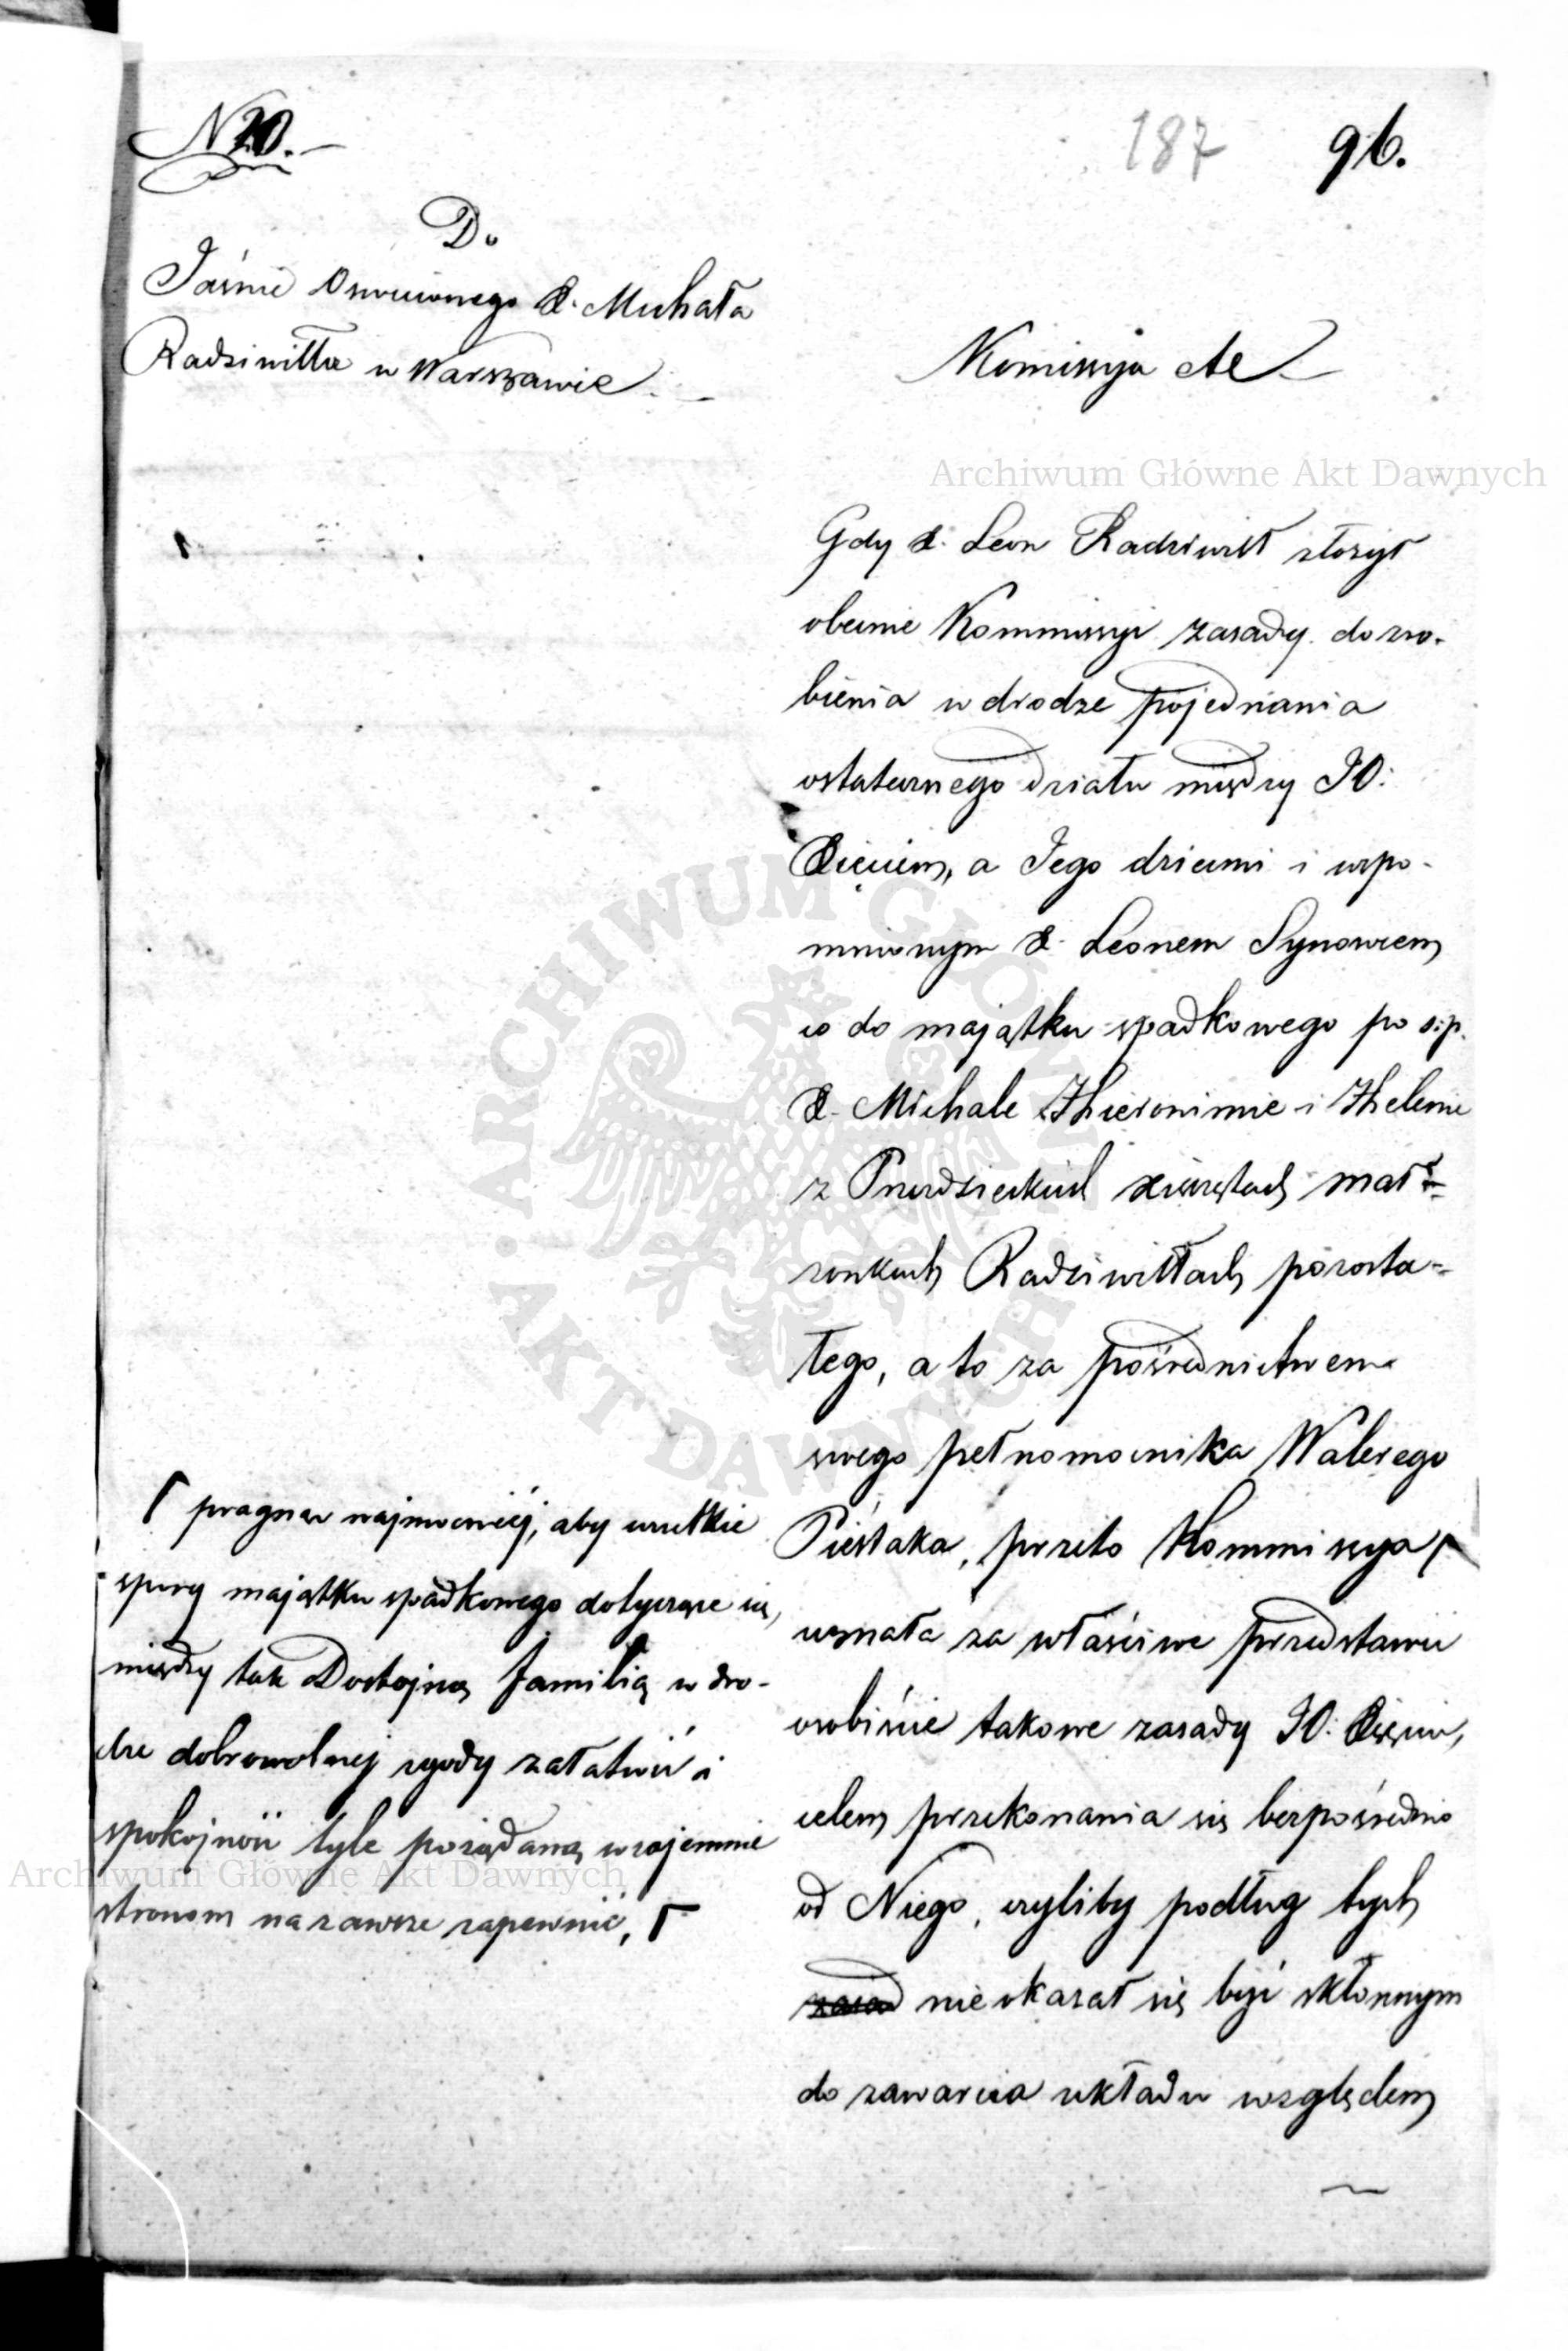 N 20.
187 96.
Do
Jaśnie Oswieconego X. Michała
Radziwiłła w Warszawie
Kommissya etc
Archiwum Główne Akt Dawnych
Gdy X. Leon Radziwiłł złożył
obecnie Kommissyi zasady do zro-
bienia w drodze pojednania
ostatecznego działu między JO:
Xięciem, a Jego dziećmi i wspo-
mnionym X. Leonem Synowcem
co do majątku spadkowego po ś.p.
X. Michale Hieronimie i Helenie
z Przezdzieckich xiążętach mał-
żonkach Radziwiłłach pozosta-
łego, a to za pośrednictwem
swego pełnomocnika Walerego
Pieślaka, przeto Kommissya
uznała za właściwe przedstawić
osobiście takowe zasady JO. Xięciu,
celem przekonania się bezpośrednio
od Niego, czyliby podług tych
zasad nie okazał się być skłonnym
do zawarcia układu względem
pragnąc najmocniéj, aby wszelkie
spory majątku spadkowego dotyczące się,
między tak Dostojną familią w dro-
dze dobrowolnej zgody załatwić i
spokojność tyle pożądaną wzajemnie
stronom na zawsze zapewnić,
Archiwum Główne Akt Dawnych
ARCHIWUM GŁÓWNE · AKT DAWNYCH ·